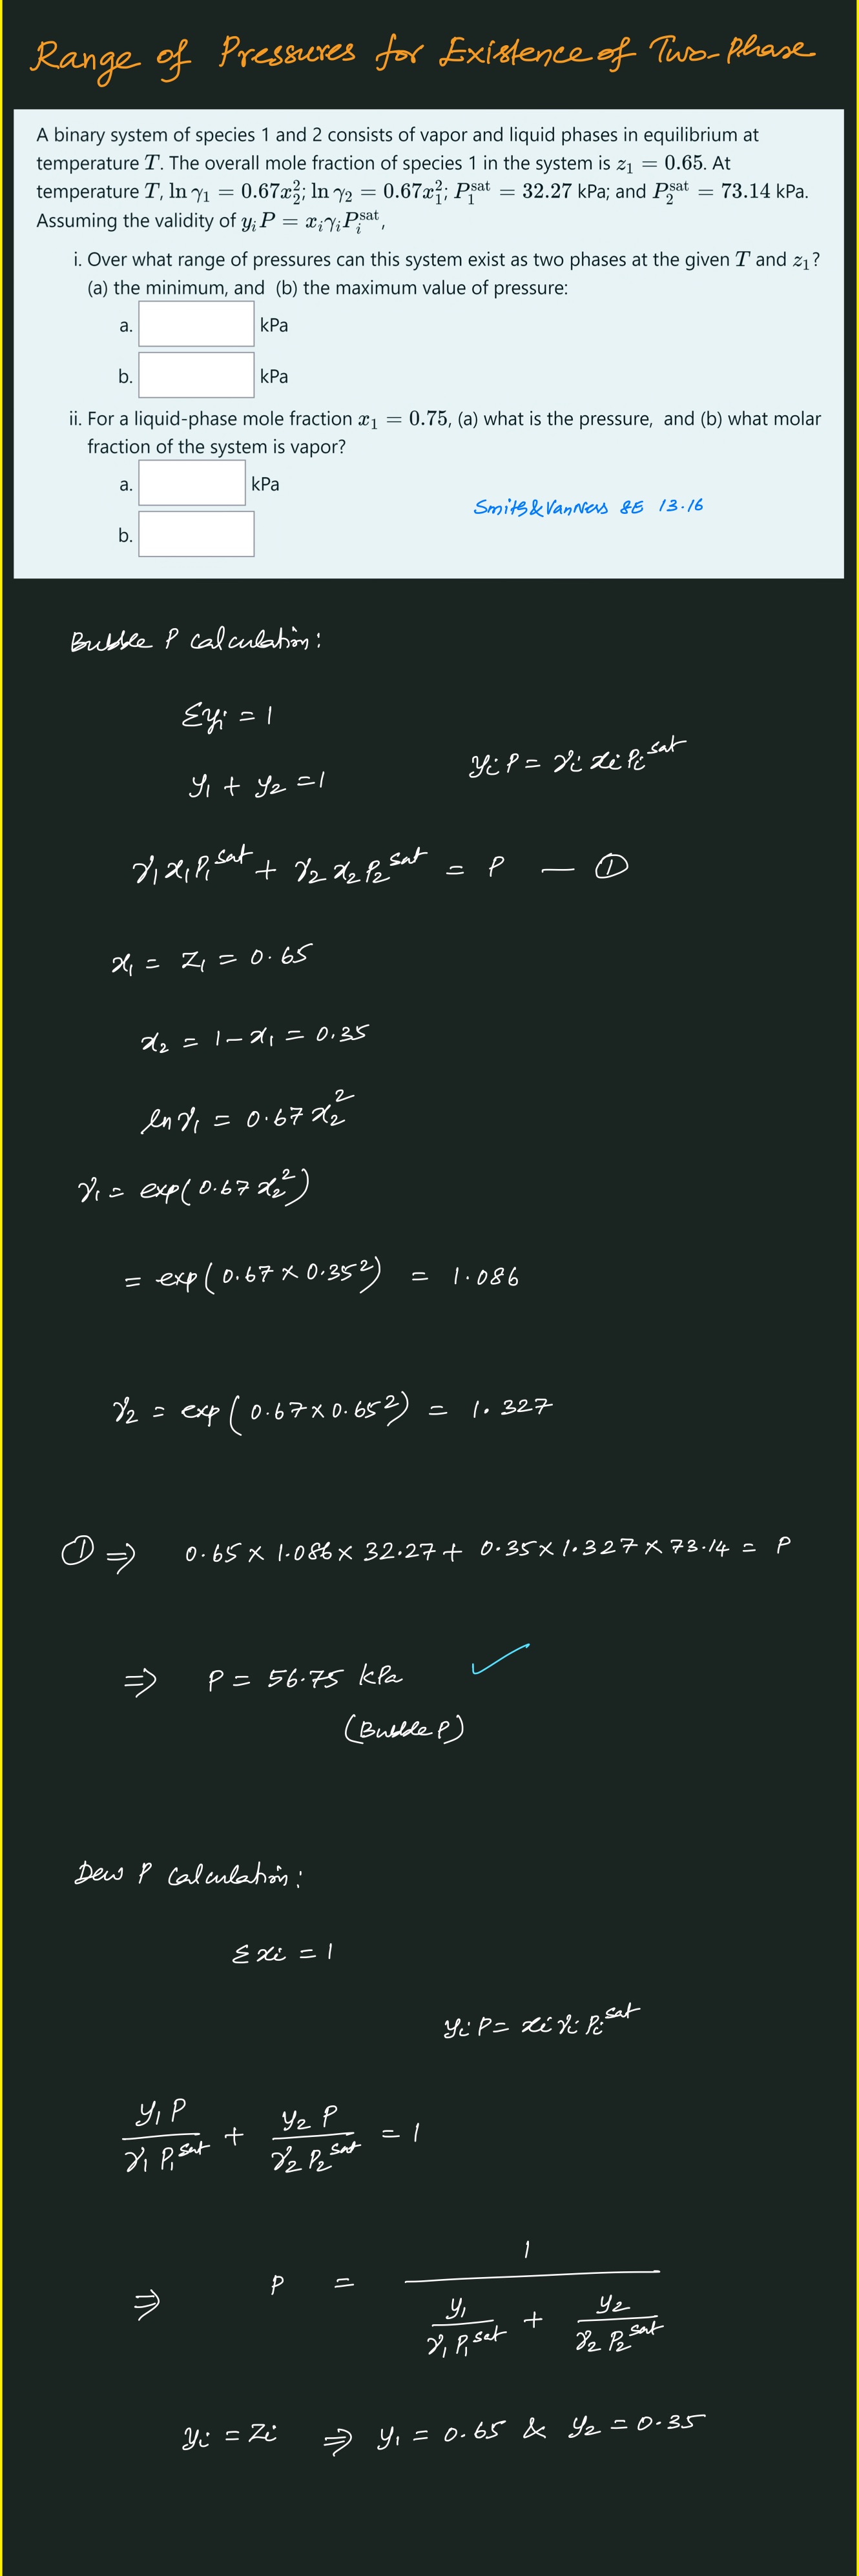 Range of Pressures for Existence of Two-Phase
A binary system of species 1 and 2 consists of vapor and liquid phases in equilibrium at
temperature T. The overall mole fraction of species 1 in the system is z₁ = 0.65. At
temperature T, ln γ₁ = 0.67x₂²; ln γ₂ = 0.67x₁²; P₁ˢᵃᵗ = 32.27 kPa; and P₂ˢᵃᵗ = 73.14 kPa.
Assuming the validity of yᵢP = xᵢγᵢPᵢˢᵃᵗ,
i. Over what range of pressures can this system exist as two phases at the given T and z₁?
(a) the minimum, and (b) the maximum value of pressure:
a. kPa
b. kPa
ii. For a liquid-phase mole fraction x₁ = 0.75, (a) what is the pressure, and (b) what molar
fraction of the system is vapor?
a. kPa
b.
Smith & VanNess 8E 13.16
Bubble P Calculation:
Σyᵢ = 1
y₁ + y₂ = 1
yᵢP = γᵢxᵢPᵢˢᵃᵗ
γ₁x₁P₁ˢᵃᵗ + γ₂x₂P₂ˢᵃᵗ = P — ①
x₁ = z₁ = 0.65
x₂ = 1 - x₁ = 0.35
ln γ₁ = 0.67x₂²
γ₁ = exp(0.67x₂²)
= exp(0.67 × 0.35²) = 1.086
γ₂ = exp(0.67 × 0.65²) = 1.327
① ⇒ 0.65 × 1.086 × 32.27 + 0.35 × 1.327 × 73.14 = P
⇒ P = 56.75 kPa ✓
(Bubble P)
Dew P Calculation:
Σxᵢ = 1
yᵢP = xᵢγᵢPᵢˢᵃᵗ
y₁P/(γ₁P₁ˢᵃᵗ) + y₂P/(γ₂P₂ˢᵃᵗ) = 1
⇒ P = 1/(y₁/(γ₁P₁ˢᵃᵗ) + y₂/(γ₂P₂ˢᵃᵗ))
yᵢ = zᵢ ⇒ y₁ = 0.65 & y₂ = 0.35